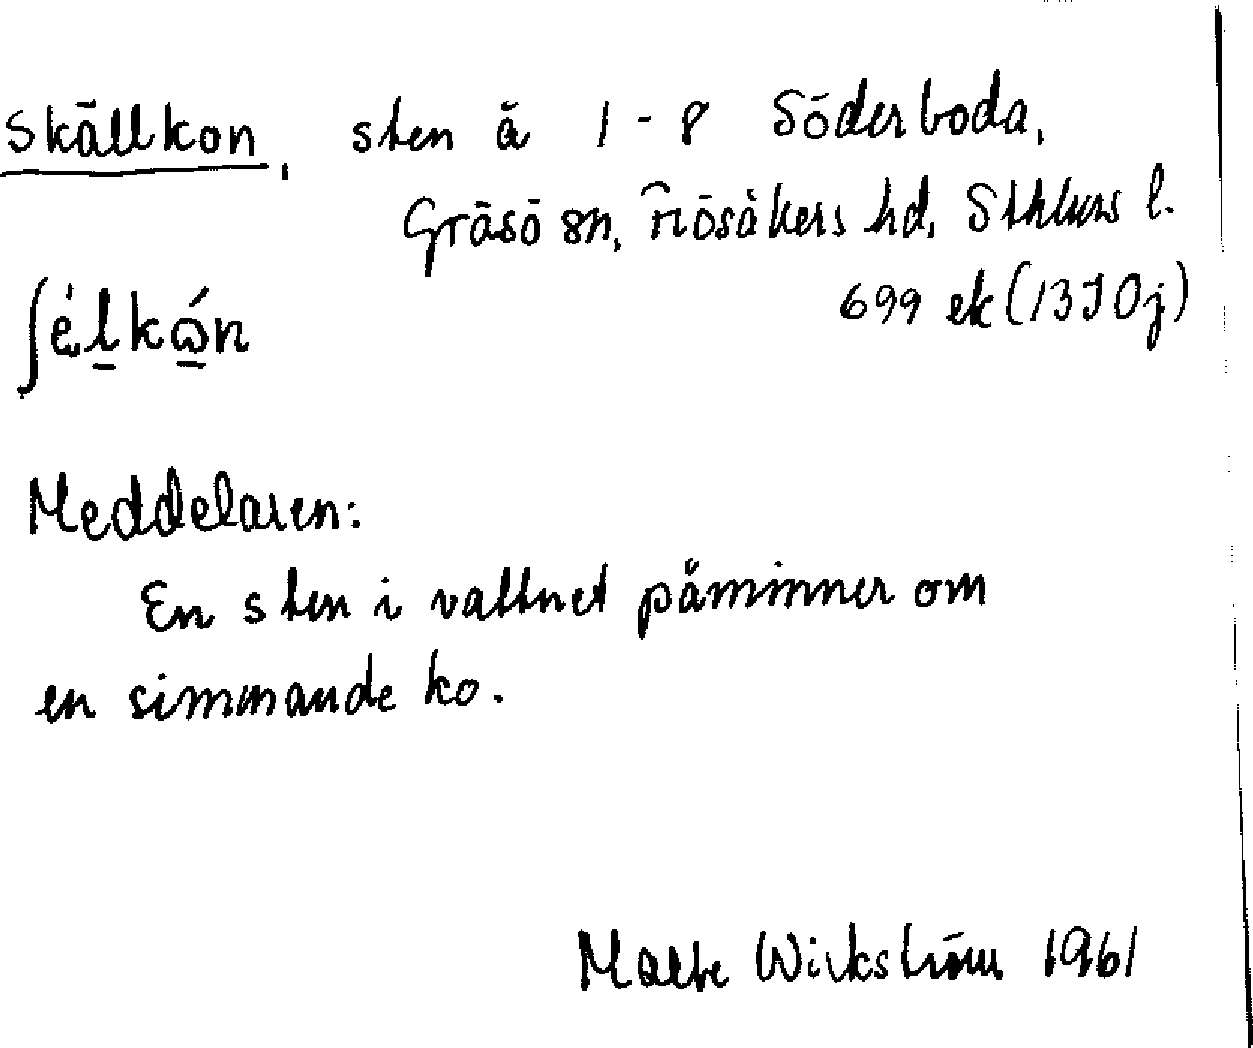 Skällkon, sten å 1-8 Söderboda,
Gräsö sn, Frösåkers hd, Sthlms l.
699 ek (13I0j)
ʃèl̠kώ̠n
Meddelaren:
En sten i vattnet påminner om
en simmande ko.
Malte Wickström 1961